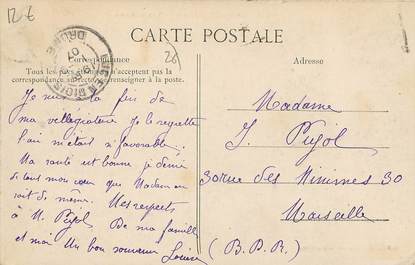 12 €
CARTE POSTALE
26
LUS EN DIOIS
DROME
07
Correspondance
Adresse
Tous les pays n'acceptent pas la
correspondance au recto, se renseigner à la poste.
Je suis à la fin de
ma villegiature je le regrette
l'air m'était si favorable.
Ma santé est bonne je désire
de tout mon cœur que Madame en
soit de même. Mes respects
à M. Pujol. De ma famille
et moi Un bon souvenir Louise
Madame
J. Pujol
30 rue des Minimes 30
Marseille
(B. D. R.)